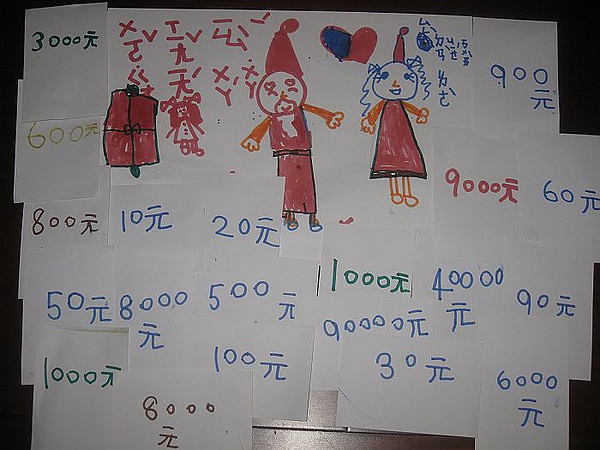 3000元
900
元
600元
9000元
60元
800元
10元
20元
1000元
40000
元
90元
50元
8000
元
500
元
90000元
100元
30元
1000元
6000
元
8000
元